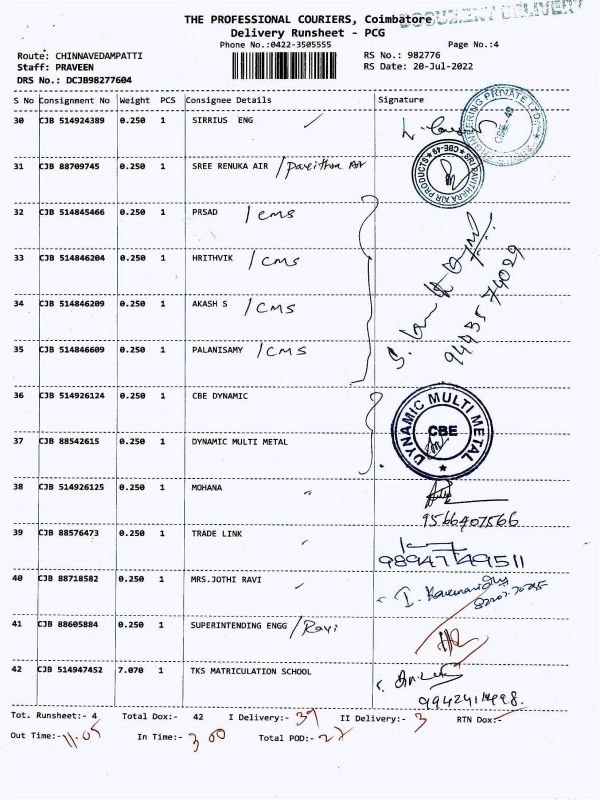 THE PROFESSIONAL COURIERS, Coimbatore
DOCUMENT DELIVERY
Delivery Runsheet - PCG
Phone No.:0422-3505555
Page No.:4
Route: CHINNAVEDAMPATTI
RS No.: 982776
Staff: PRAVEEN
RS Date: 20-Jul-2022
DRS No.: DCJB98277604
S No Consignment No Weight PCS Consignee Details Signature
30 CJB 514924389 0.250 1 SIRRIUS ENG
CBE-49
31 CJB 88709745 0.250 1 SREE RENUKA AIR /Pavithra Air
SRI PAVITHERA AIR PRODUCTS CBE-49
32 CJB 514845466 0.250 1 PRSAD /CMS
33 CJB 514846204 0.250 1 HRITHVIK /CMS
34 CJB 514846209 0.250 1 AKASH S /CMS
94435 74029
35 CJB 514846609 0.250 1 PALANISAMY /CMS
36 CJB 514926124 0.250 1 CBE DYNAMIC
DYNAMIC MULTI METAL
CBE
37 CJB 88542615 0.250 1 DYNAMIC MULTI METAL
38 CJB 514926125 0.250 1 MOHANA
9566407566
39 CJB 88576473 0.250 1 TRADE LINK
9894749511
40 CJB 88718582 0.250 1 MRS.JOTHI RAVI
41 CJB 88605884 0.250 1 SUPERINTENDING ENGG /Ravi
42 CJB 514947452 7.070 1 TKS MATRICULATION SCHOOL
Tot. Runsheet:- 4 Total Dox:- 42 I Delivery:- 39 II Delivery:- 3 RTN Dox:-
Out Time:- 11.05 In Time:- 3 00 Total POD:- 27